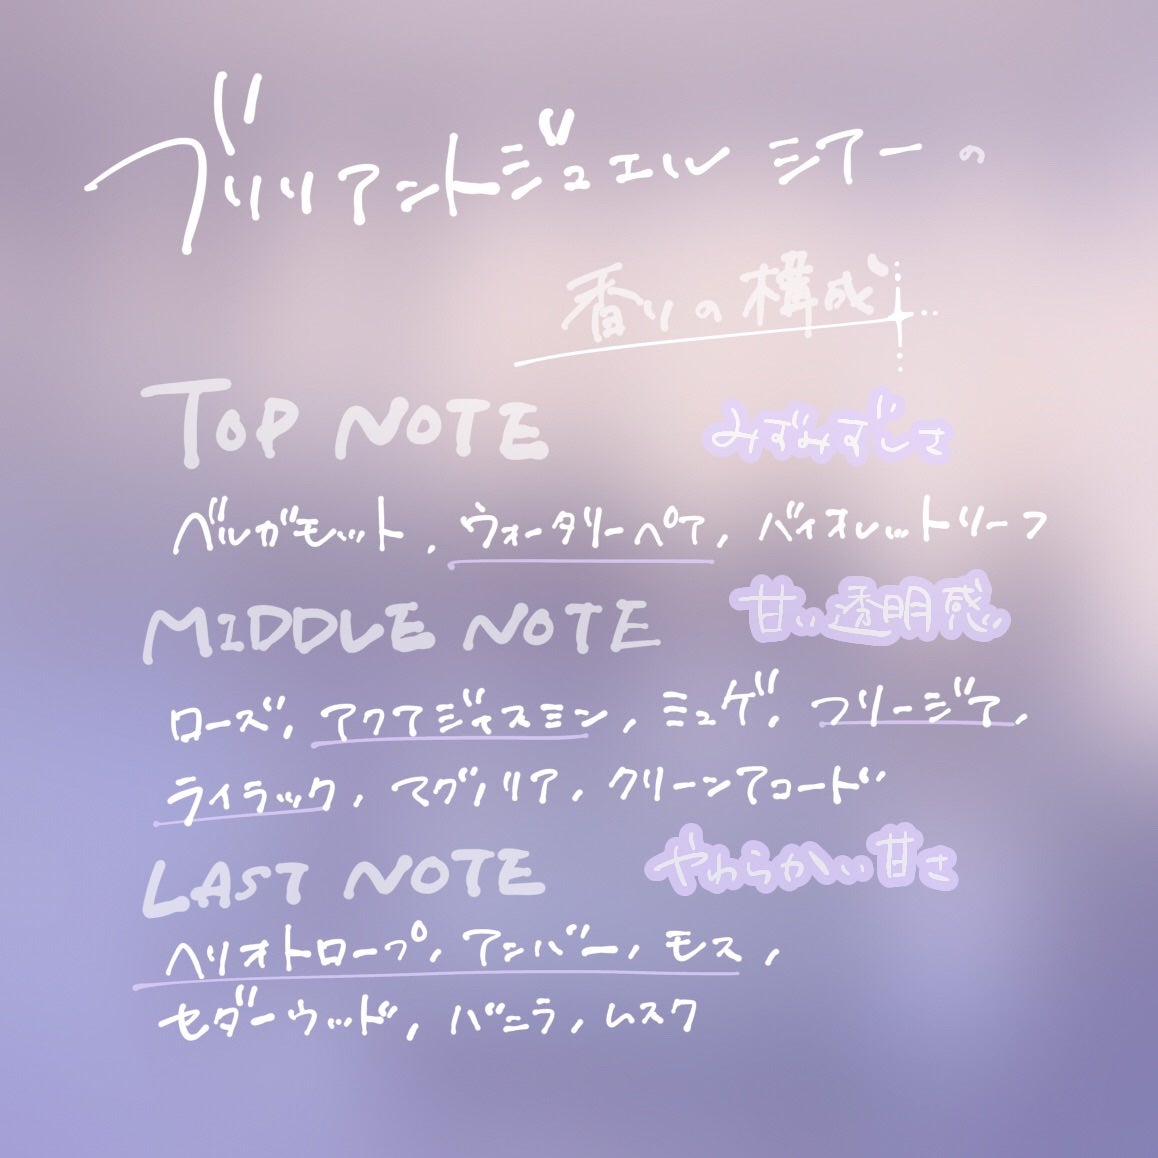 ブリリアントジュエル シアーの
香りの構成
TOP NOTE みずみずしさ
ベルガモット, ウォータリーペア, バイオレットリーフ
MIDDLE NOTE 甘い透明感
ローズ, アクアジャスミン, ミュゲ, フリージア,
ライラック, マグノリア, クリーンアコード
LAST NOTE やわらかい甘さ
ヘリオトロープ, アンバー, モス,
セダーウッド, バニラ, ムスク